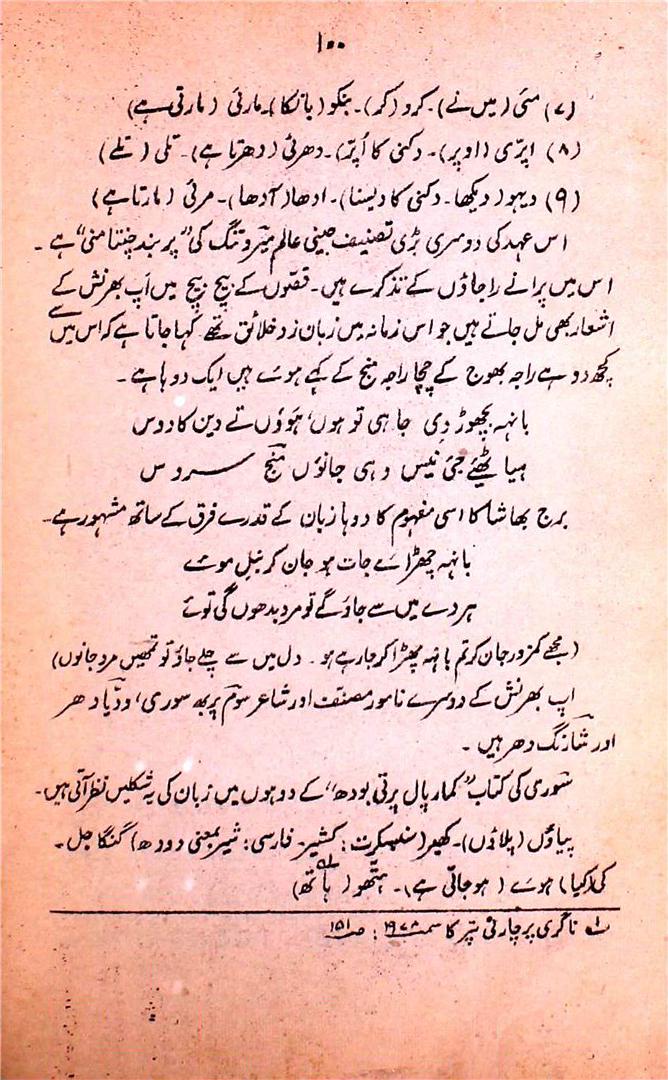 ۱۰۰
(۷) مئی (میں نے)۔ کرو (کر)۔ بنکو (بانکا)۔ مارئی (مارتی ہے)
(۸) اپرّی (اوپر)۔ دکنی کا اُپّر)۔ دھرئی (دھرتا ہے)۔ تلی (تلے)
(۹) دیہو (دیکھا۔ دکنی کا دیسنا)۔ ادھا (آدھا)۔ مرئی (مارتا ہے)
اس عہد کی دوسری بڑی تصنیف جینی عالم میروتنگ کی "پربند چنتامنی" ہے۔
اس میں پرانے راجاؤں کے تذکرے ہیں۔ قصّوں کے بیچ بیچ میں اَپ بھرنش کے
اشعار بھی مل جاتے ہیں جو اس زمانہ میں زبان زد خلائق تھے کہا جاتا ہے کہ اس میں سے
کچھ دوہے راجہ بھوج کے چچا راجہ منج کے کہے ہوئے ہیں ایک دوہا ہے۔
بانہہ بچھوڑ دی جاہی تو ہوں، ہَووُں تے دین کا دوس
ہیا ٹھیٔے جئی نیس رہی جانوُں منج سروس
برج بھاشا کا اسی مفہوم کا دوہا زبان کے قدرے فرق کے ساتھ مشہور ہے۔
بانہہ چھڑائے جات ہو جان کر نبل موئے
ہردے میں سے جاؤ گے تو مرد بدھوں گی توئے
(مجھے کمزور جان کر تم بانہہ چھڑا کر جا رہے ہو۔ دل میں سے چلے جاؤ تو تمھیں مرد جانوں)
اپ بھرنش کے دوسرے نامور مصنف اور شاعر سوم پربھ سوری، ودّیا دھر
اور شارنگ دھر ہیں۔
سوری کی کتاب "کمار پال پرتی بودھ" کے دوہوں میں زبان کی یہ شکلیں نظر آتی ہیں۔
پیاؤں (پلاؤں)۔ کھیر (سنسکرت: کشیر۔ فارسی: شیر بمعنی دودھ) گنگا جل۔
کی (کیا) ہوے (ہو جاتی ہے)۔ ہتّھو (ہاتھ)
۱؎ ناگری پرچارنی پترکا سمت ۱۹۷۸: ص ۱۵۱